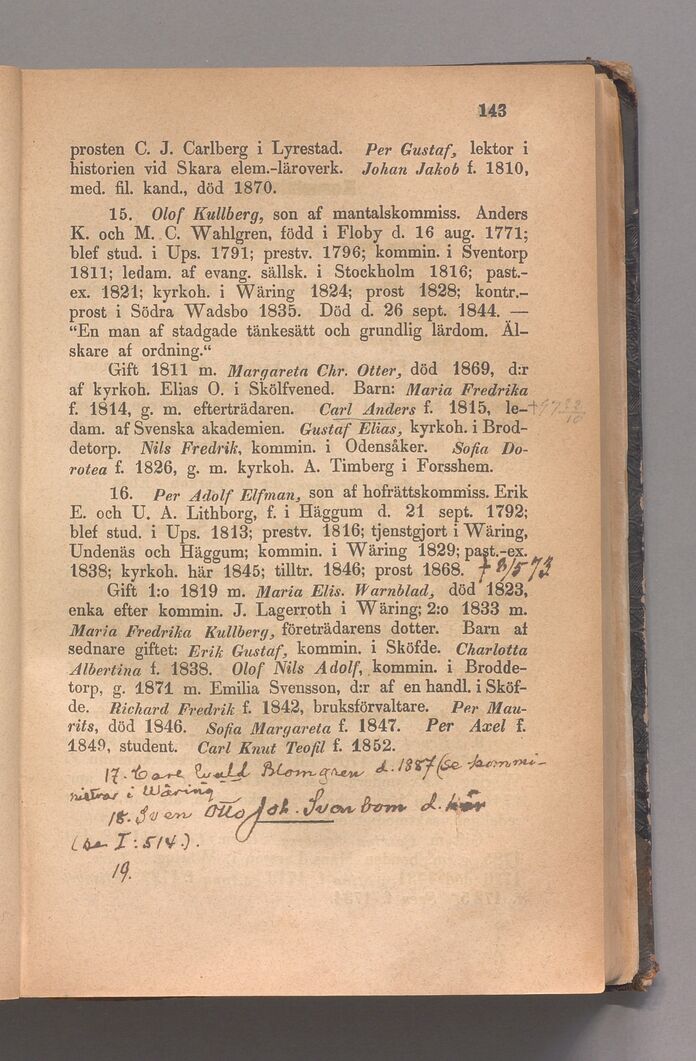 143
prosten C. J. Carlberg i Lyrestad. Per Gustaf, lektor i
historien vid Skara elem.-läroverk. Johan Jakob f. 1810,
med. fil. kand., död 1870.
15. Olof Kullberg, son af mantalskommiss. Anders
K. och M. C. Wahlgren, född i Floby d. 16 aug. 1771;
blef stud. i Ups. 1791; prestv. 1796; kommin. i Sventorp
1811; ledam. af evang. sällsk. i Stockholm 1816; past.-
ex. 1821; kyrkoh. i Wäring 1824; prost 1828; kontr.-
prost i Södra Wadsbo 1835. Död d. 26 sept. 1844. —
“En man af stadgade tänkesätt och grundlig lärdom. Äl-
skare af ordning.“
Gift 1811 m. Margareta Chr. Otter, död 1869, d:r
af kyrkoh. Elias O. i Skölfvened. Barn: Maria Fredrika
f. 1814, g. m. efterträdaren. Carl Anders f. 1815, le-
dam. af Svenska akademien. Gustaf Elias, kyrkoh. i Brod-
detorp. Nils Fredrik, kommin. i Odensåker. Sofia Do-
rotea f. 1826, g. m. kyrkoh. A. Timberg i Forsshem.
16. Per Adolf Elfman, son af hofrättskommiss. Erik
E. och U. A. Lithborg, f. i Häggum d. 21 sept. 1792;
blef stud. i Ups. 1813; prestv. 1816; tjenstgjort i Wäring,
Undenäs och Häggum; kommin. i Wäring 1829; past.-ex.
1838; kyrkoh. här 1845; tilltr. 1846; prost 1868. † 8/5 73
Gift 1:o 1819 m. Maria Elis. Warnblad, död 1823,
enka efter kommin. J. Lagerroth i Wäring; 2:o 1833 m.
Maria Fredrika Kullberg, företrädarens dotter. Barn af
sednare giftet: Erik Gustaf, kommin. i Sköfde. Charlotta
Albertina f. 1838. Olof Nils Adolf, kommin. i Brodde-
torp, g. 1871 m. Emilia Svensson, d:r af en handl. i Sköf-
de. Richard Fredrik f. 1842, bruksförvaltare. Per Mau-
rits, död 1846. Sofia Margareta f. 1847. Per Axel f.
1849, student. Carl Knut Teofil f. 1852.
17. Carl Evald Blomgren d. 1887 (se kommi-
nistrar i Wäring
18. Sven Otto Joh. Svanbom d. här
(se I: 514.).
19.